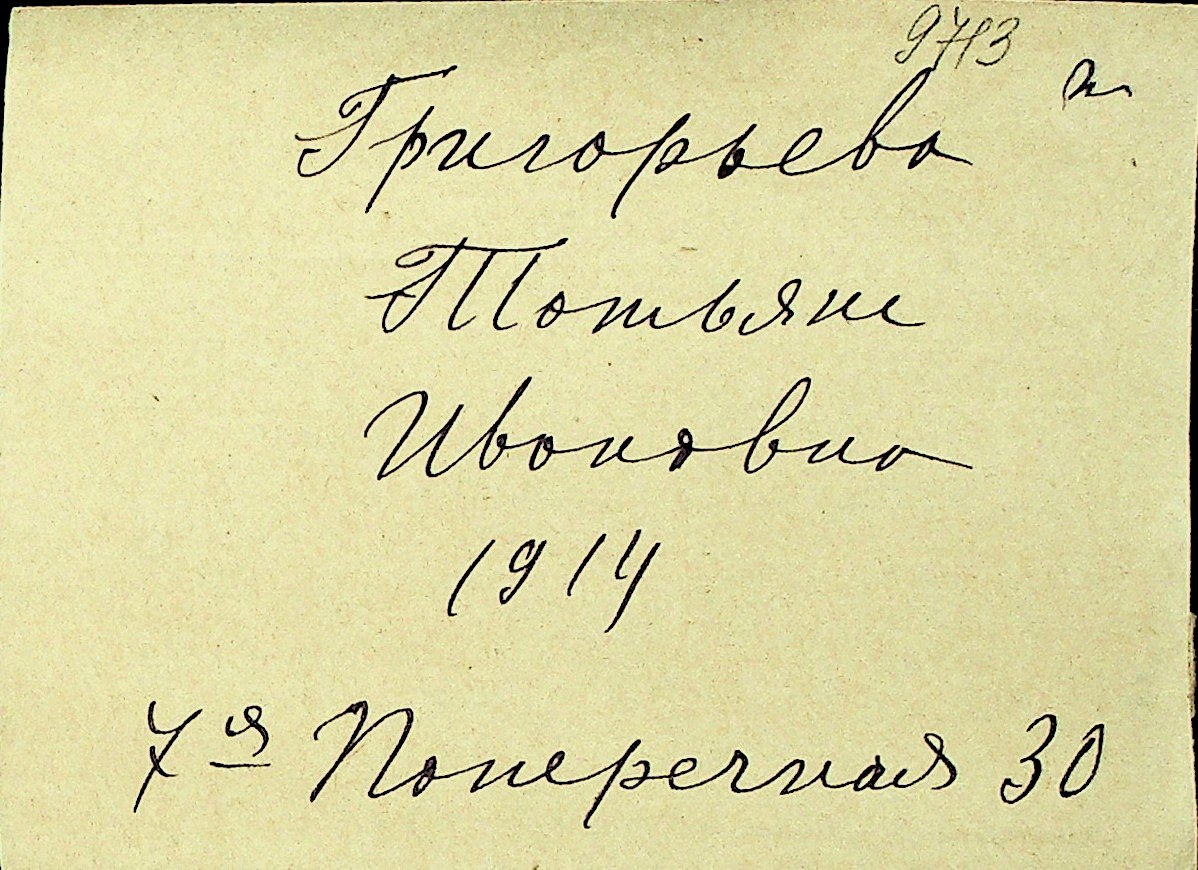 9713
Григорьева
Татьяна
Ивановна
1914
7я Поперечная 30